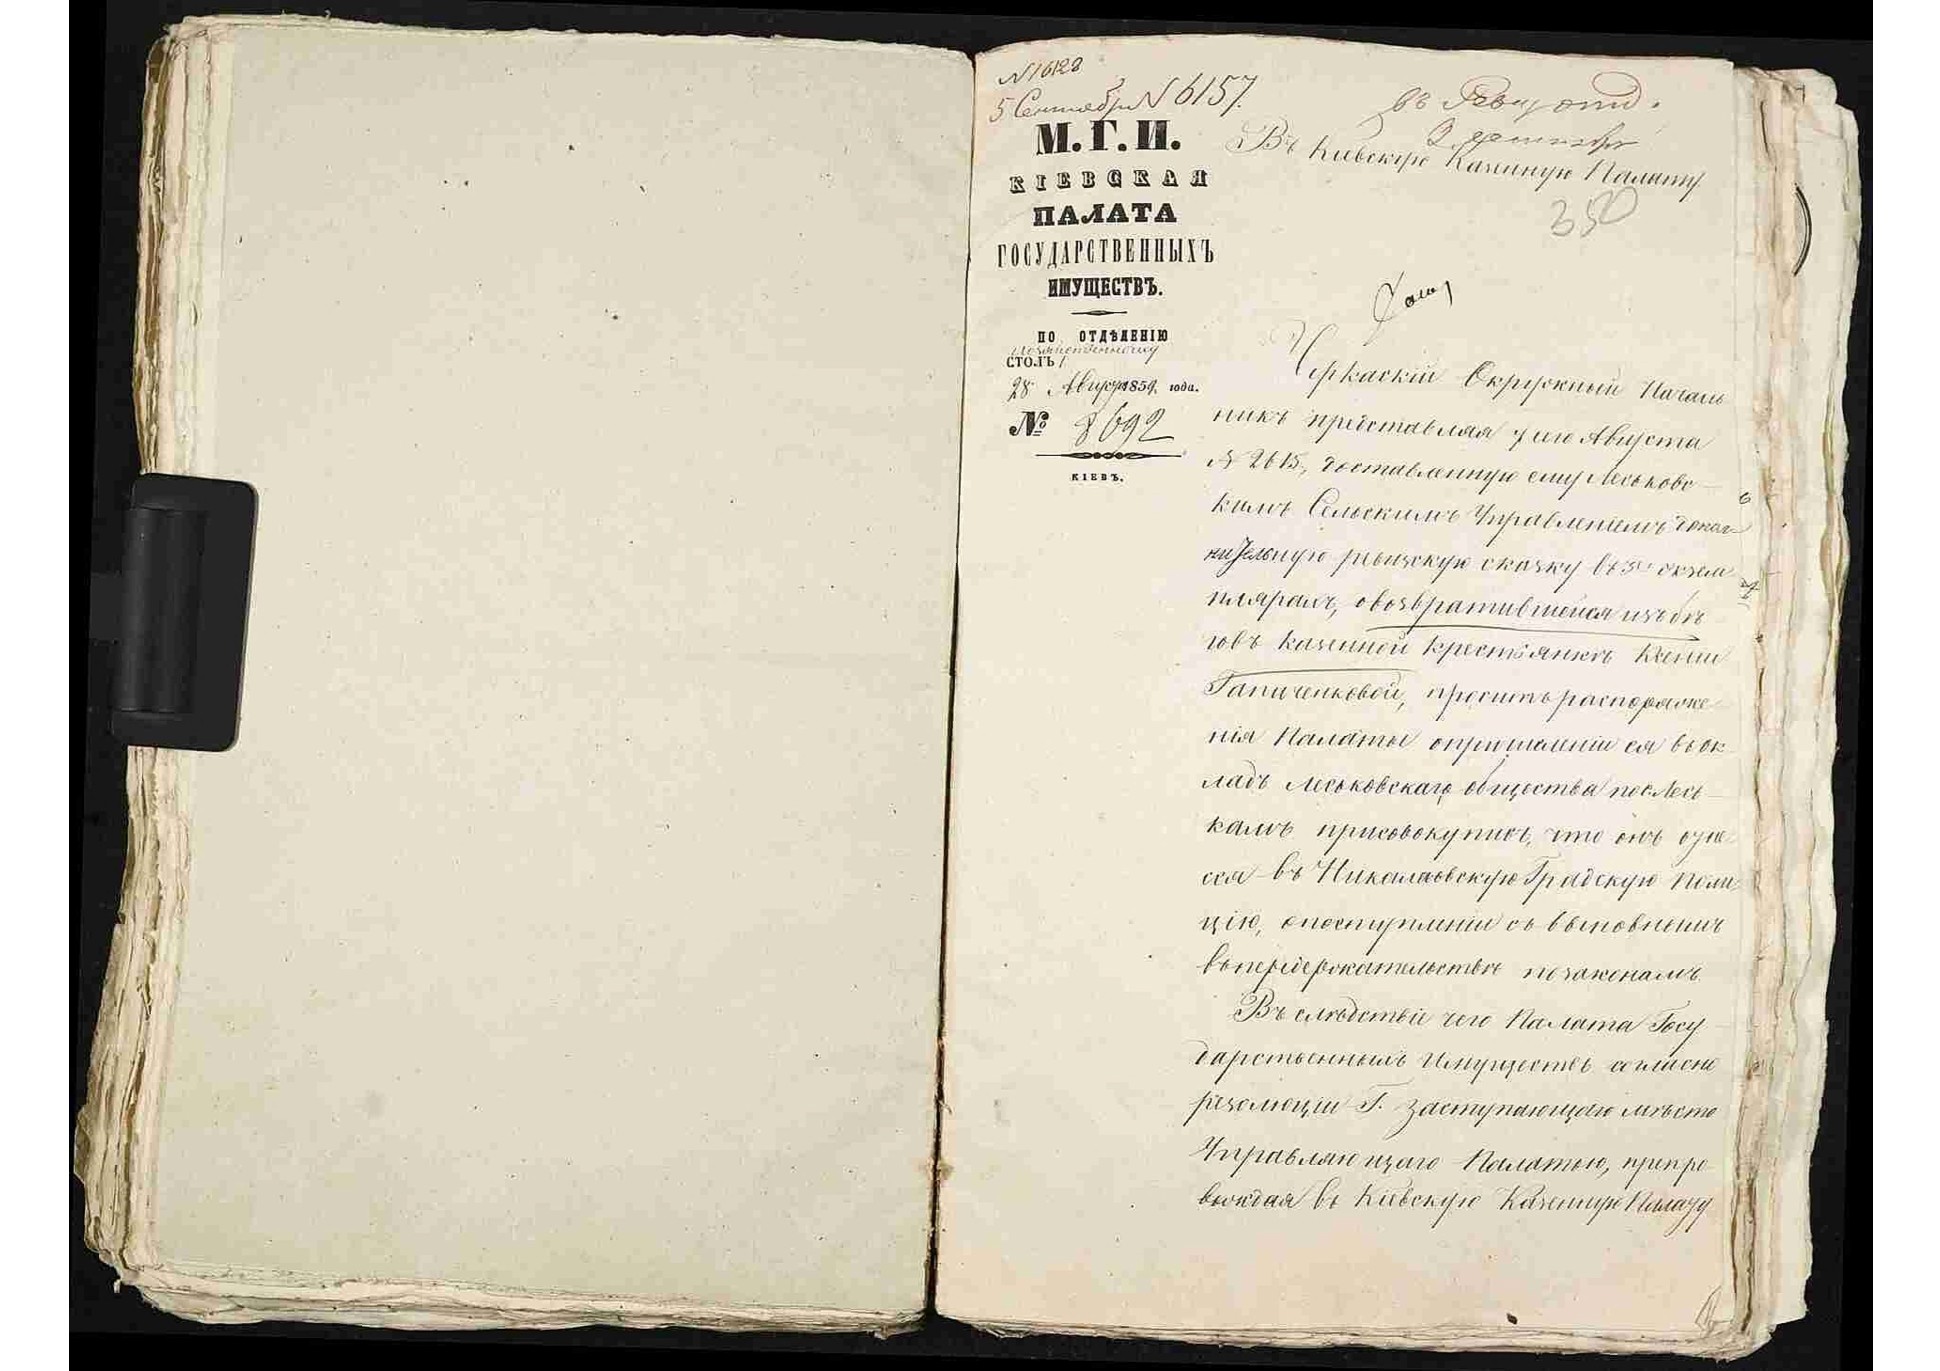 № 16128
5 Сентября № 6157.
въ Ревиз. отд.
3 сентября
М. Г. И.
КІЕВСКАЯ
ПАЛАТА
ГОСУДАРСТВЕННЫХЪ
ИМУЩЕСТВЪ.
ПО ОТДѢЛЕНІЮ
Хозяйственному
СТОЛЪ 1
28 Августа 1859 года.
№ 8692
КІЕВЪ.
Въ Кіевскую Казенную Палату
350
Черкаскій Окружный Началь
никъ представляя 7 сего Августа
№ 2615, доставленную ему Леськовс-
кимъ Сельскимъ Управленіемъ допол-
нительную ревизскую сказку въ 3х экзем
плярахъ, о возвратившейся изъ бѣ
говъ казенной крестьянкѣ Ксеніи
Гапиченковой, проситъ распоряже
нія Палаты о причисленіи ея въ ок
ладъ Леськовскаго общества по с. Лесь-
камъ присовокупивъ, что онъ отне-
сся въ Николаевскую Градскую Поли
цію, о поступленіи съ виновными
въ передержательствѣ по законамъ.
Въ слѣдствіе чего Палата Госу
дарственныхъ Имуществъ согласно
резолюціи Г. Заступающаго мѣсто
Управляющаго Палатою, препро
вождая въ Кіевскую Казенную Палату